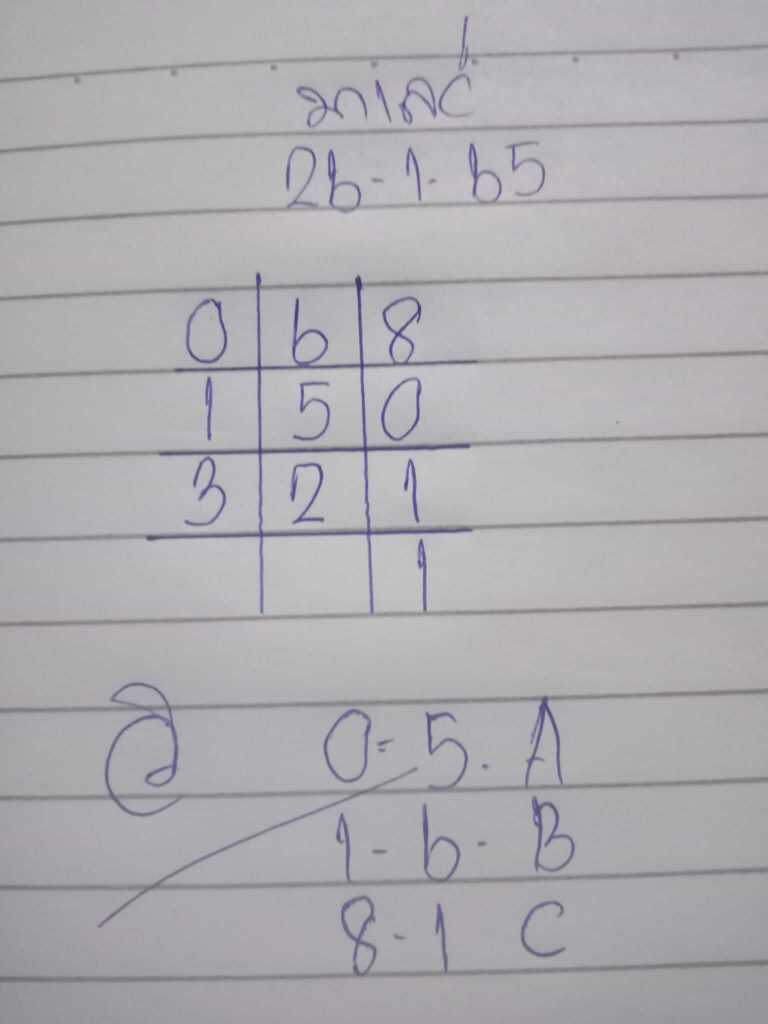 26-1-65
0 6 8
1 5 0
3 2 1
1
0=5. A
1-6- B
8-1 C